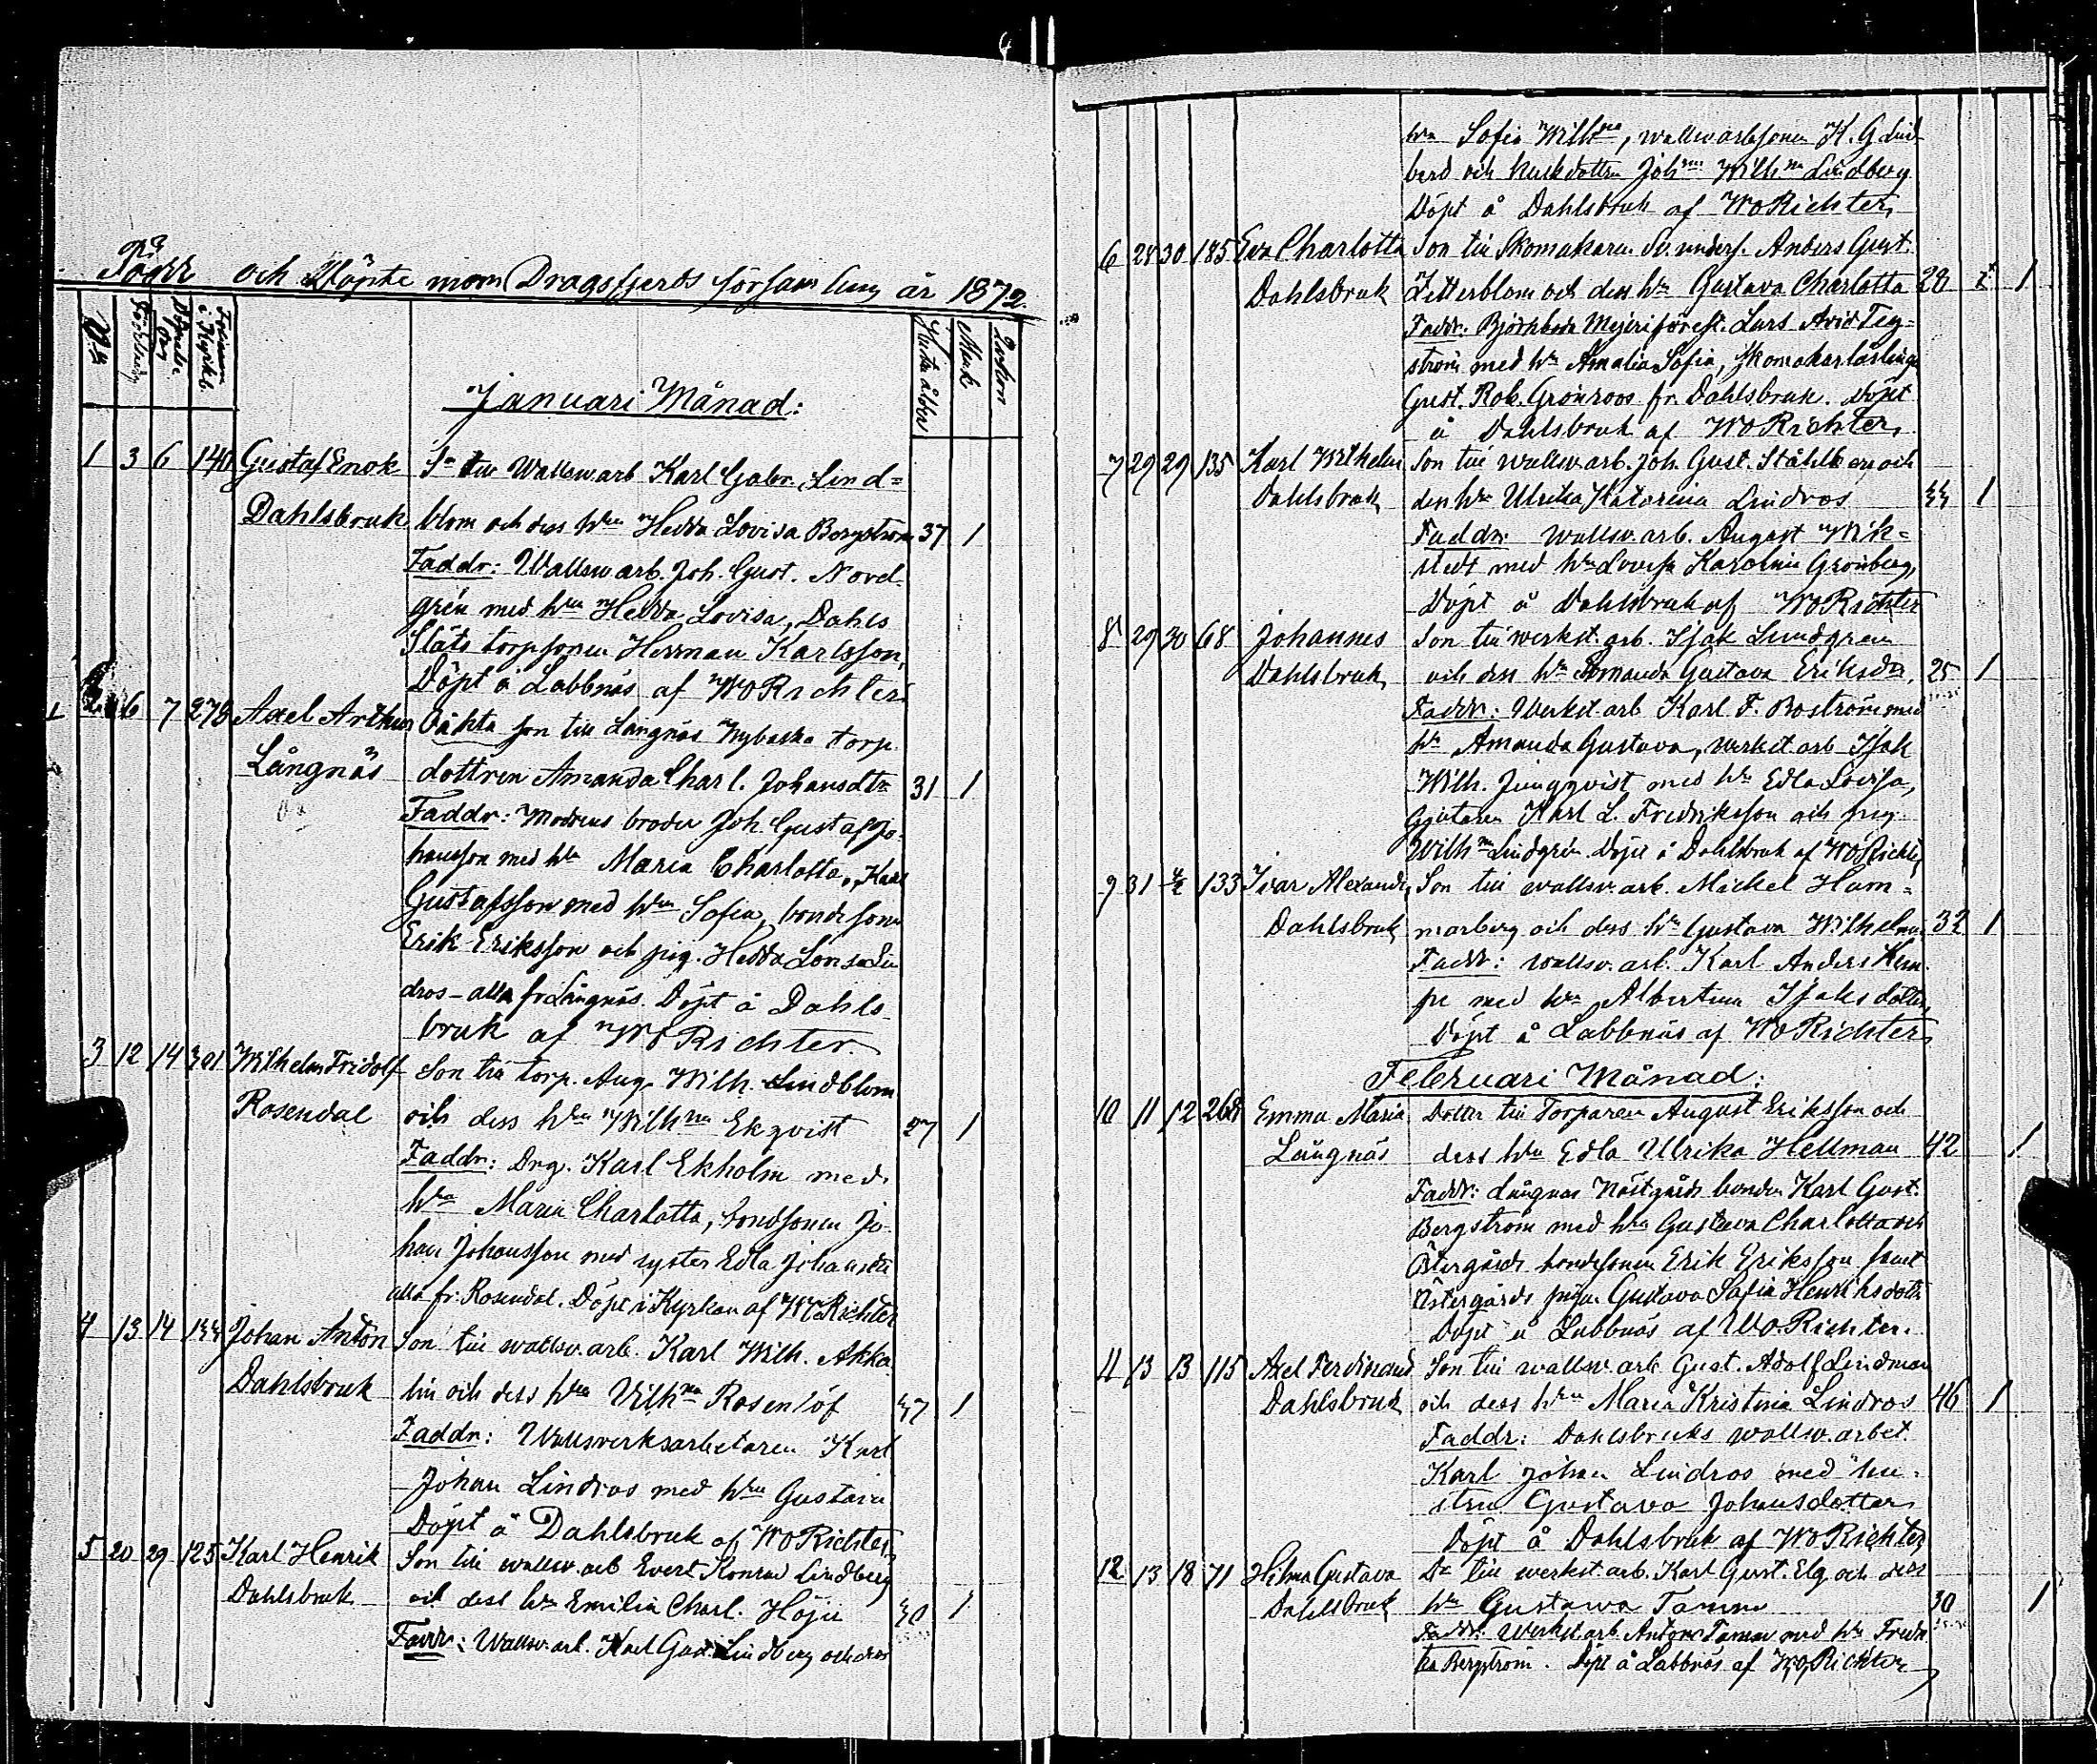 Födde och Döpte inom Dragsfjerds församling år 1872.
Januari Månad:
1 3 6 140 Gustaf Enok Sn till Wallsw.arb Karl Gabr. Lind=
Dahlsbruk blom och dess hru Hedda Lovisa Bergström 37 1
Faddr: Wallsw arb. Joh. Gust. Nord
grén med hru Hedda Lovisa, Dahls
Släts torpsonen Herman Karlsson,
Döpt å Labbnäs af WO Richter.
6 7 278 Axel Arthur Oäkta son till Långnäs Nybacka torp
Långnäs dottren Amanda Charl. Johansdtr 31 1
Faddr: Modrens broder Joh. Gustaf Jo-
hansson med hru Maria Charlotta, Karl
Gustafsson med hru Sofia, bondesonen
Erik Eriksson och pig. Hedda Lin
dros - alla fr Långnäs. Döpt å Dahls
bruk af WO Richter.
3 12 14 301 Wilhelm Fridolf Son till torp. Aug. Wilh. Lindblom
Rosendal och dess hru Wilhna Ekqvist 27 1
Faddr: Drg. Karl Ekholm med
hru Maria Charlotta, bondsonen Jo
han Johansson med syster Edla Johansdtr
alla fr. Rosendal. Döpt i Kyrkan af WO Richter
4 13 14 Johan Anton Son till wallsv.arb. Karl Wilh. Akka
Dahlsbruk lin och dess hru Vilhna Rosenlöf 37 1
Faddr: Wallsverksarbetaren Karl
Johan Lindros med hru Gustava
Döpt å Dahlsbruk af WO Richter
5 20 29 125 Karl Henrik Son till wallsw.arb Evert Konrad Lindberg
Dahlsbruk och dess hru Emilia Charl. Höjer 30 1
Faddr: Wallsw.arb. Karl Gust. Lindberg och dess
hru Sofia Wilhna, wallsv arbsonen K. G Lind
berg och Johna Wilhna Lindberg
Döpt å Dahlsbruk af WO Richter,
6 28 30 185 Eva Charlotta Son till Skomakaren Anders Gust.
Dahlsbruk Zetterblom och dess hru Gustava Charlotta 28 1
Faddr. Björkboda Mejeriförest. Lars Arvid Teg=
ström med hru Amalia Sofia, skomakarlärlingen
Gust. Rob. Grönroos fr. Dahlsbruk. Döpt
å Dahlsbruk af WO Richter,
7 29 29 135 Karl Wilhelm Son till wallsv.arb. Joh. Gust. Ståhlberg och
Dahlsbruk dess hru Ulrika Katarina Lindros 33 1
Faddr: wallsv.arb. August Wik=
stedt med hru Lovisa Karolina Grönberg,
Döpt å Dahlsbruk af WO Richter
8 29 30 68 Johannes Son till werkst.arb. Isak Lundgren
Dahlsbruk och dess hru Amanda Gustava Eriksdtr. 25 1
Faddr: Werkst arb Karl F. Boström med
hru Amanda Gustava, verkst arb Isak
Wilh. Jungqvist med hru Edla Lovisa,
Gjutaren Karl L. Fredriksson och pig.
Wilhna Lindgrén. Döpt å Dahlsbruk af WO Richter
9 31 133 Ivar Alexander Son till wallsv.arb. Mickel Ham=
Dahlsbruk marberg och dess hru Gustava Wilhelmina 32 1
Faddr: wallsv.arb. Karl Anders Kem
pe med hru Albertina Isaksdotter,
Döpt å Labbnäs af WO Richter
Februari Månad:
10 11 12 268 Emma Maria Dotter till Torparen August Eriksson och
Långnäs dess hru Edla Ulrika Hellman 42 1
Faddr: Långnäs Nästgårds bonden Karl Gust.
Bergström med hru Gustava Charlotta och
Östergårds bondesonen Erik Eriksson samt
Östergårds pigan Gustava Sofia Henriksdotter
Döpt å Labbnäs af WO. Richter.
11 13 13 115 Axel Ferdinand Son till wallsv.arb Gust. Adolf Lindman
Dahlsbruk och dess hru Maria Kristina Lindros 46 1
Faddr: Dahlsbruks wallsv.arbet.
Karl Johan Lindros med hu-
strun Gustava Johansdotter
Döpt å Dahlsbruk af WO Richter
12 13 18 71 Hilma Gustava Dr till werkst.arb. Karl Gust. Elg och dess
Dahlsbruk hru Gustawa Tamm 30 1
Faddr. Werkst arb Anton Tamm med hru Fredri
ka Bergström. Döpt å Labbnäs af WO Richter